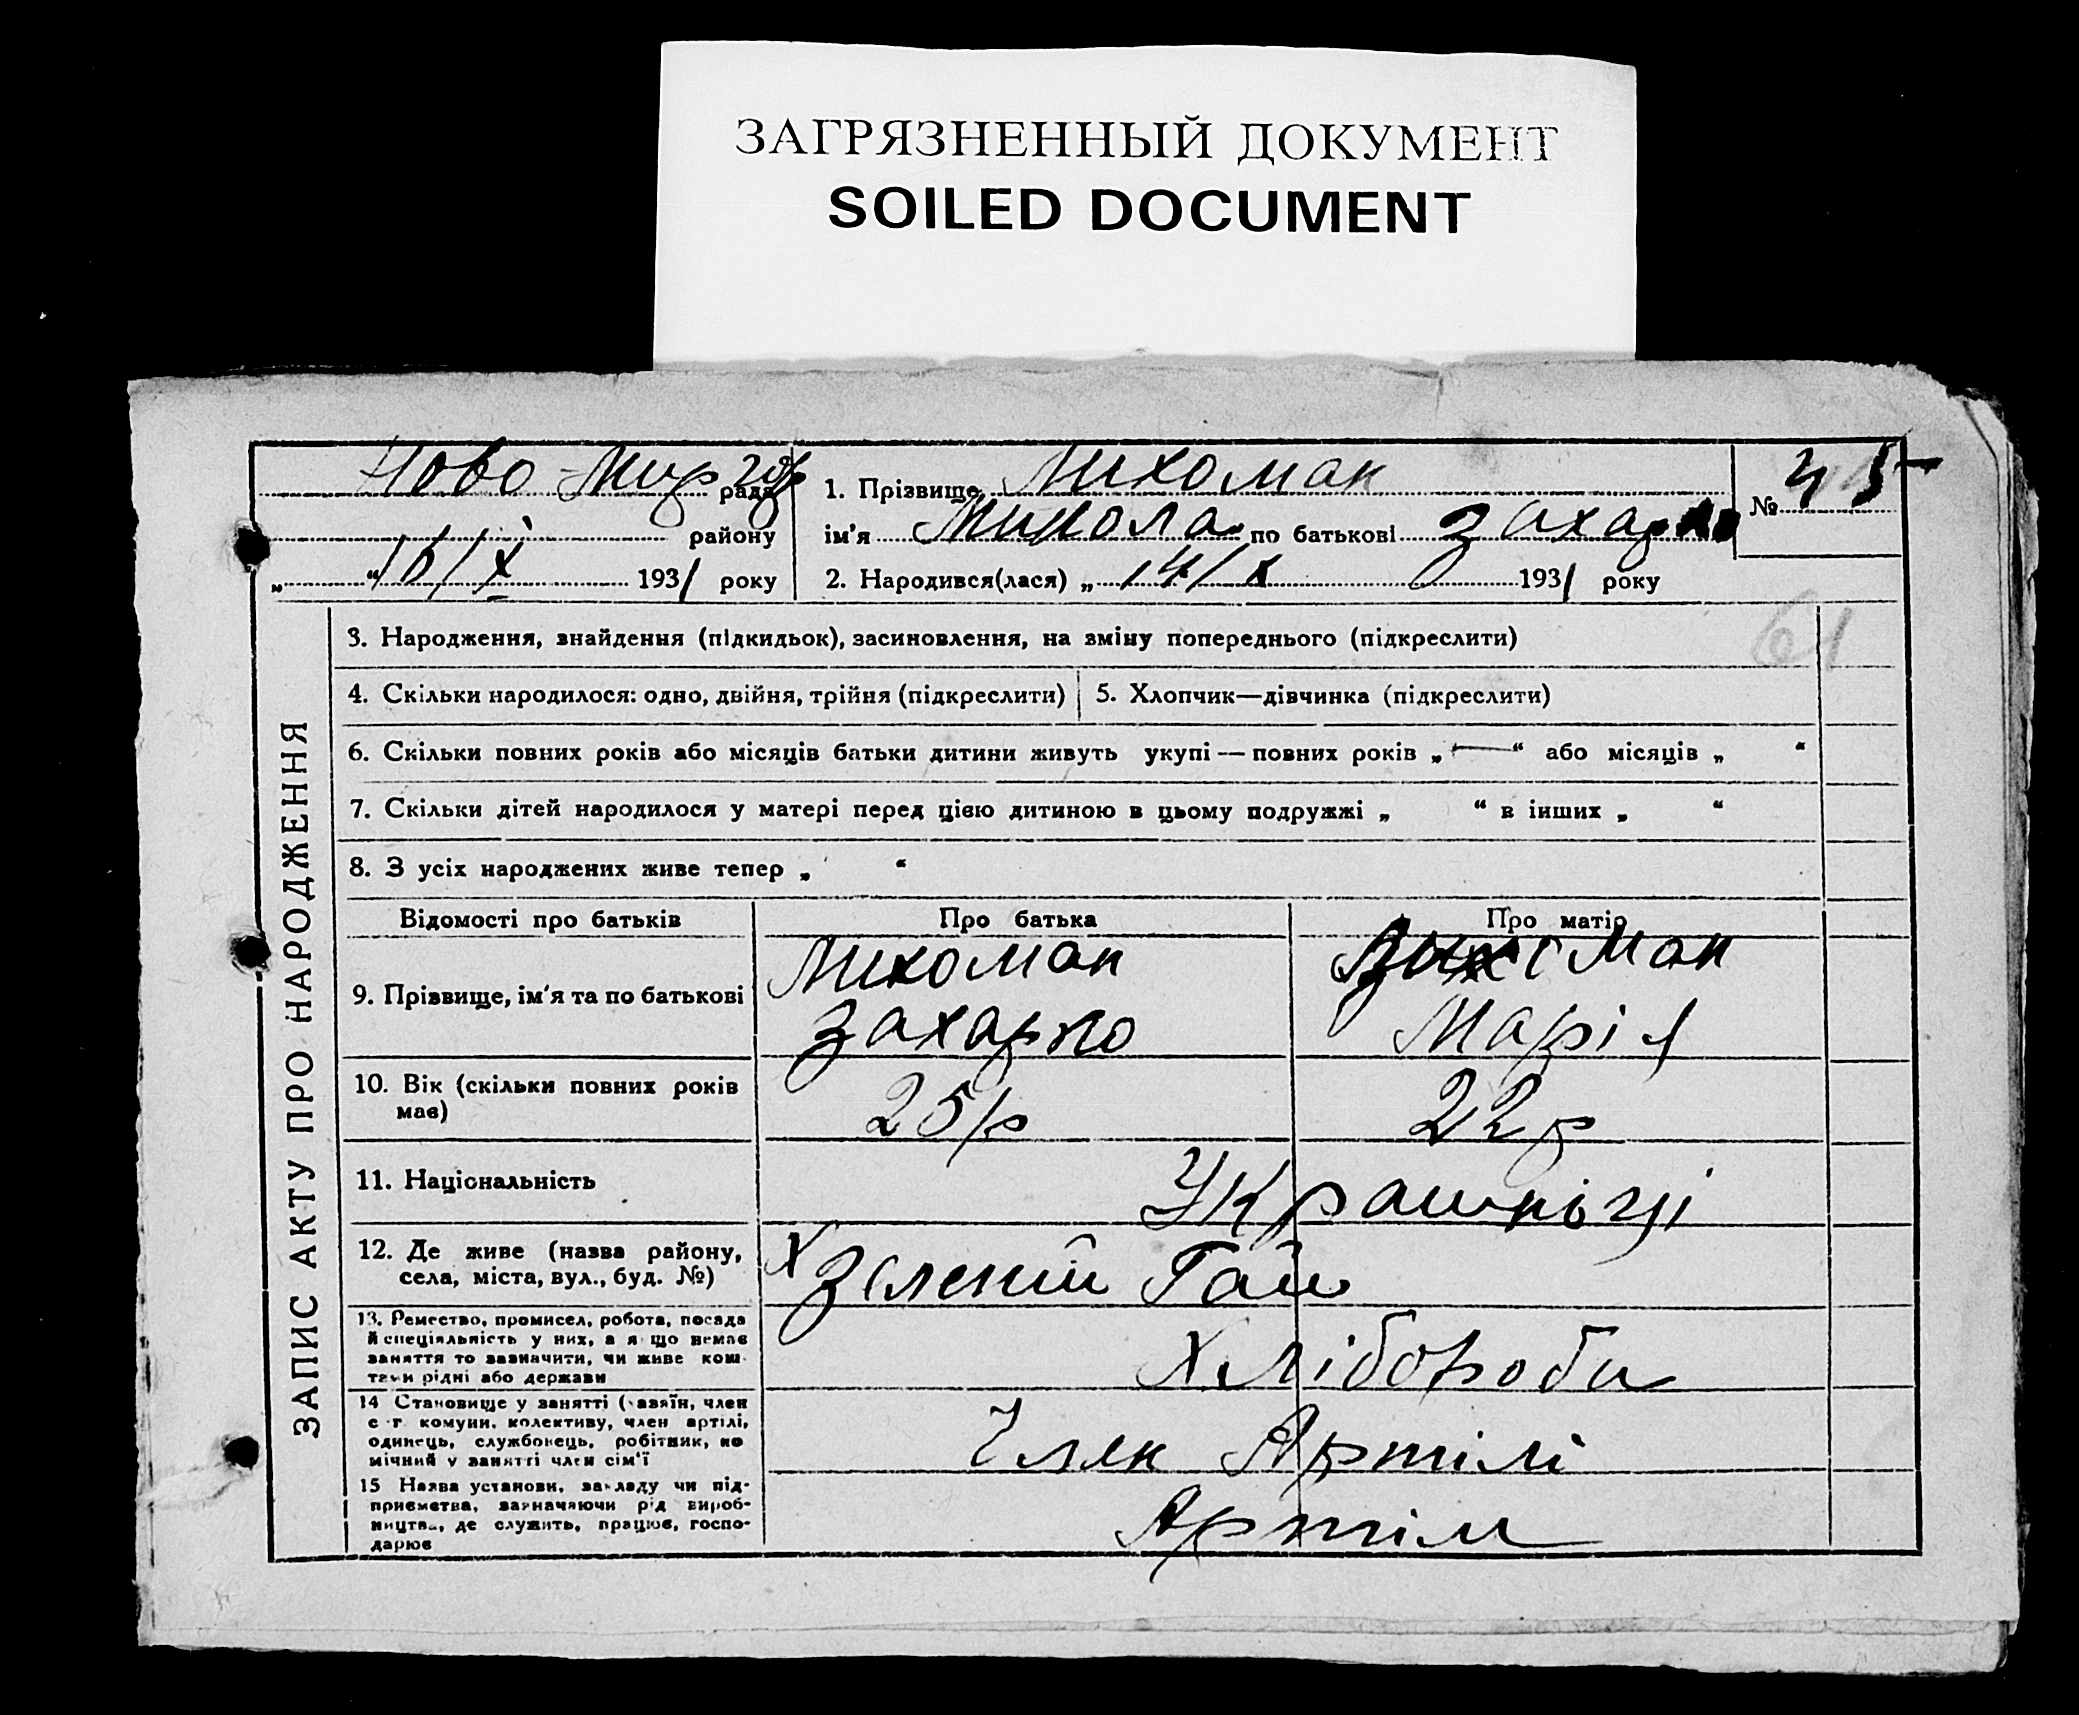 ЗАГРЯЗНЕННЫЙ ДОКУМЕНТ
SOILED DOCUMENT
Ново-Миргор рада
району
„ “ 16/X 1931 року
1. Прізвище Лихоман
ім'я Микола по батькові Захарко
2. Народився(лася) „ 14/X 1931 року
№ 45
61
ЗАПИС АКТУ ПРО НАРОДЖЕННЯ
3. Народження, знайдення (підкидьок), засиновлення, на зміну попереднього (підкреслити)
4. Скільки народилося: одно, двійня, трійня (підкреслити)
5. Хлопчик—дівчинка (підкреслити)
6. Скільки повних років або місяців батьки дитини живуть укупі — повних років „ — “ або місяців „ “
7. Скільки дітей народилося у матері перед цією дитиною в цьому подружжі „ “ в інших „ “
8. З усіх народжених живе тепер „ “
Відомості про батьків
Про батька
Про матір
9. Прізвище, ім'я та по батькові
Лихоман
Захарко
Лихоман
Марія
10. Вік (скільки повних років
має)
25/р
22р
11. Національність
Українці
12. Де живе (назва району,
села, міста, вул., буд. №)
Х Зелений Гай
13. Ремество, промисел, робота, посада
й спеціяльність у них, а якщо немає
заняття то зазначити, чи живе кош-
тами рідні або держави
Хлібороби
14 Становище у занятті (хазяїн, член
с-г. комуни, колективу, член артілі,
одинець, службовець, робітник, по
мічний у занятті член сім'ї
Член Артілі
15 Назва установи, закладу чи під-
приємства, зазначаючи рід вироб-
ництва, де служить, працює, госпо-
дарює
Артіль